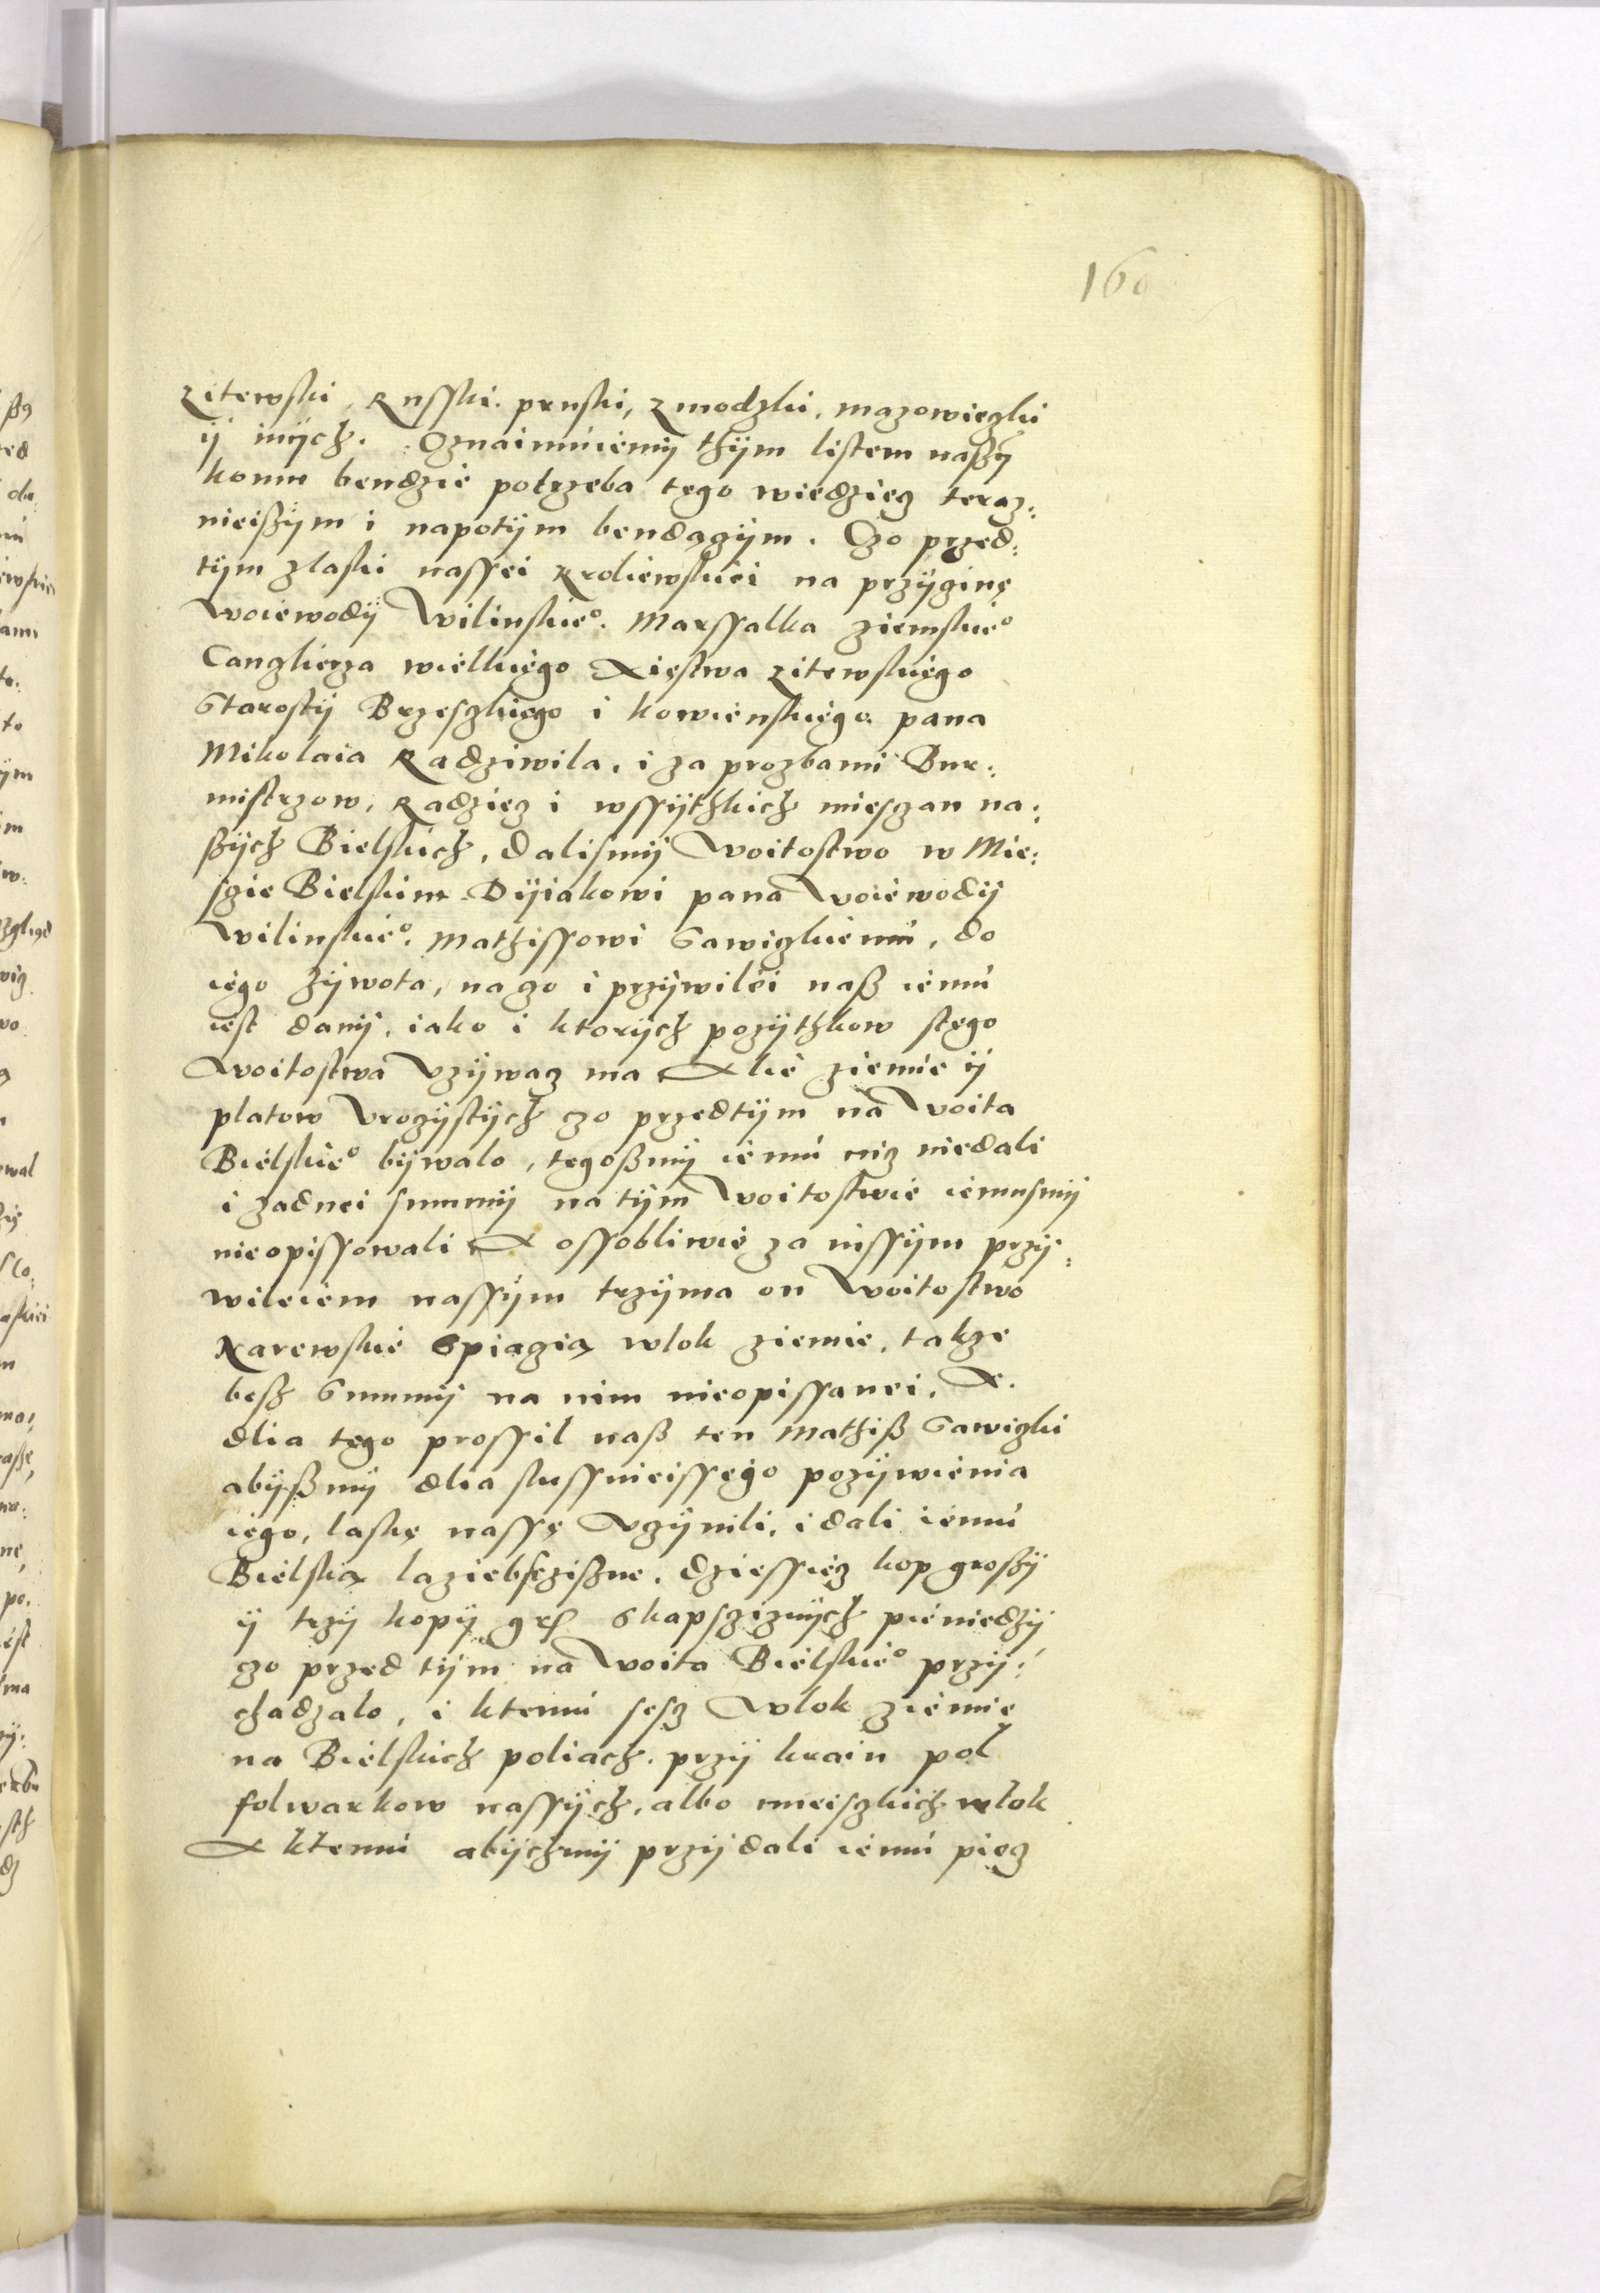 160
Litewski, Russki. pruski, zmodzki, mazowieczki
ÿ inÿch. Oznaimuiemÿ thÿm listem naszÿ
komu bendzie potrzeba tego wiedziecz teraz:
nieiszÿm i napotÿm bendączÿm. Czo przed:
tÿm zlaski nassei kroliewskiei na przÿczinę
Woiewodÿ Wilinskieº. Marssalka ziemskieº
Canczlierza wielkiego Xięstwa Litewskiego
Starostÿ Brzesczkiego i kowienskiego pana
Mikolaia Radziwila, i za prozbami Bur:
mistrzow, Radziecz i wssÿthkich miesczan na:
szÿch Bielskich, dalismÿ Woitostwo w Mie:
scie Bielskim Dÿiakowi pana Woiewodÿ
Wilinskieº. Mathissowi Sawiczkiemú, do
iego zÿwota, na czo i przÿwilei nasz iemú
iest danÿ, iako i ktorÿch pozÿthkow stego
Woitostwa Vzÿwacz ma Alie ziemie ÿ
platow Vroczÿstÿch czo przedtÿm na Woita
Bielskieº bÿwalo, tegoszmÿ iemú nicz niedali
i zadnei summÿ na tÿm Woitostwie iemusmÿ
nieopissowali A ossobliwie za inssÿm przÿ:
wileiem nassÿm trzÿma on Woitostwo
Narewskie Spięcią wlok ziemie, takze
besz Summÿ na nim nieopissanei. A.
dlia tego prossil nasz ten Mathisz Sawiczki
abÿszmÿ dlia slussnieissego pozÿwienia
iego, laskę nassę Vczÿnili, i dali iemú
Bielską laziebsczisznę, dziessięcz kop groszÿ
ÿ trzÿ kopÿ grs Skapsczÿznÿch pieniedzÿ
czo przed tÿm na Woita Bielskieº przÿ:
chadzalo, i ktemú sescz Wlok ziemie
na Bielskich poliach, przÿ kraiu pol
folwarkow nassÿch, albo mieisczkich wlok
A ktemú abÿchmÿ przÿdali iemú piecz